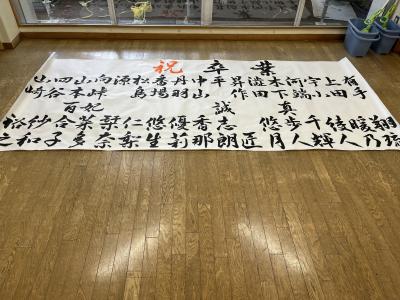 祝卒業
有手翔琉
上田暖乃
綾人
河端千輝
木下真歩人
澁田悠月
昇作匠
平誠志朗
中山香那
丹羽優莉
香場悠生
松島仁
源栞奈
向峠菜多
山本妃合子
四谷百紗和
山崎裕之